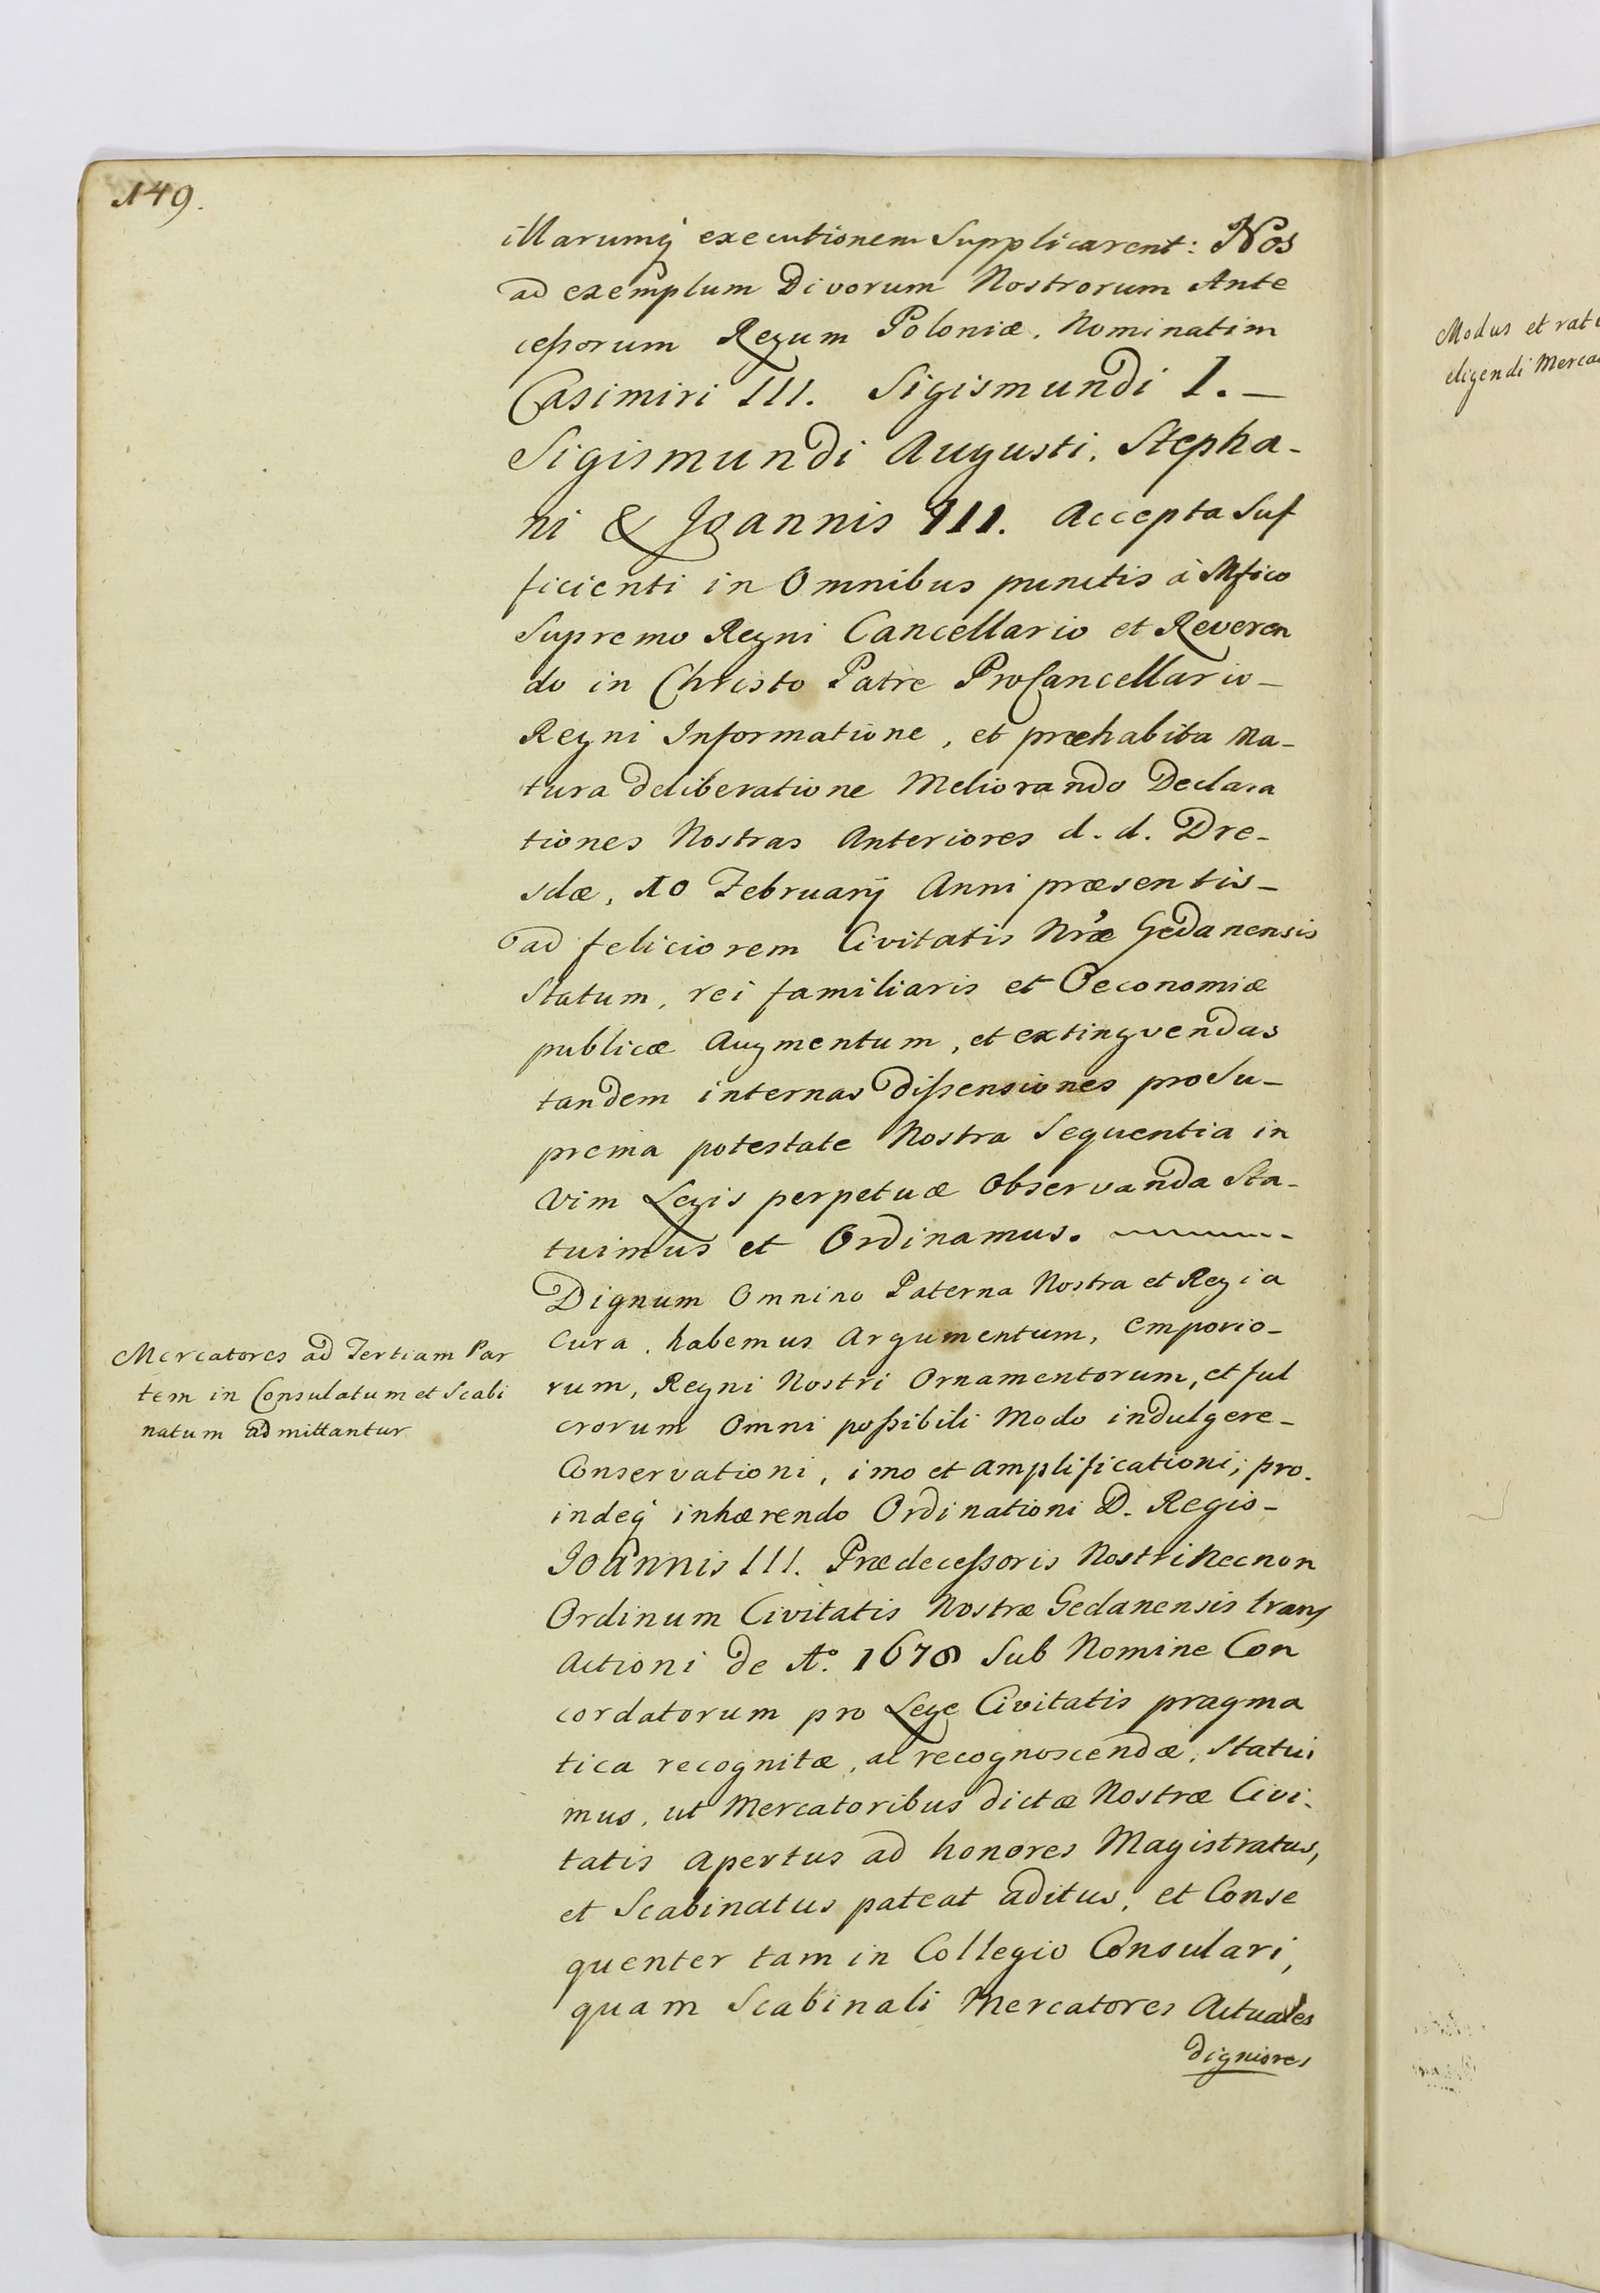 149.
illarumq́ executionem Supplicarent: Nos
ad exemplum Divorum Nostrorum Ante
ceſsorum Regum Poloniæ, Nominatim
Casimiri III. Sigismundi I. –
Sigismundi Augusti, Stepha-
ni & Joannis III. Accepta Suf
ficienti in Omnibus punctis à Mfico
Supremo Regni Cancellario et Reveren
do in Christo Patre ProCancellario –
Regni Informatione, et præhabita Ma-
tura deliberatione Meliorando Declara
tiones Nostras Anteriores d. d. Dre-
sdæ, 10 Februarÿ Anni præsentis –
ad feliciorem Civitatis Nræ Gedanensis
Statum, rei familiaris et Oeconomiæ
publicæ Augmentum, et extingvendas
tandem internas diſsensiones pro Su-
prema potestate Nostra Sequentia in
Vim Legis perpetuæ Observanda Sta-
tuimus et Ordinamus.
Dignum Omnino Paterna Nostra et Regia
Mercatores ad Tertiam Par
tem in Consulatum et Scabi
natum admittantur
Cura, habemus Argumentum, emporio-
rum, Regni Nostri Ornamentorum, et ful
crorum Omni poſsibili Modo indulgere –
Conservationi, imo et Amplificationi; pro-
indeq́ inhærendo Ordinationi D. Regis –
Joannis III. Prædeceſsoris Nostri Necnon
Ordinum Civitatis Nostræ Gedanensis trans
Actioni de Aº. 1678 Sub Nomine Con
cordatorum pro Lege Civitatis pragma
tica recognitæ, ac recognoscendæ, Statui
mus, ut Mercatoribus dictæ Nostræ Civi-
tatis Apertus ad honores Magistratus,
et Scabinatus pateat aditus, et Conse
quenter tam in Collegio Consulari,
quam Scabinali Mercatores Actuales
digniores
Modus et rati
eligendi Merca